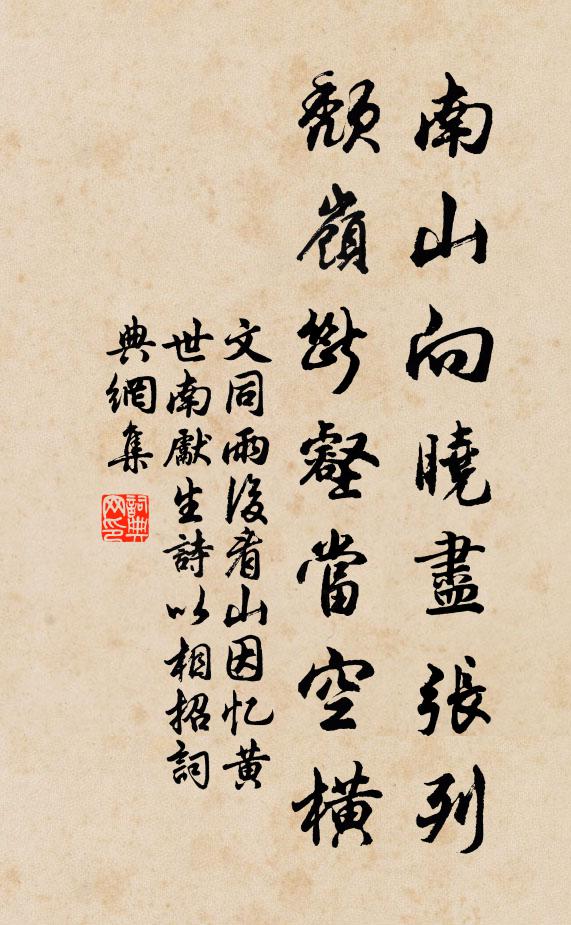 南山向曉盡張列
頹嶺斷壑當空橫
文同雨後看山因忆黄
世南獻生詩以相招詞
典網集
詞典网印